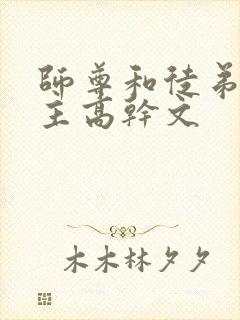 師尊和徒弟
主高幹文
木木林夕夕